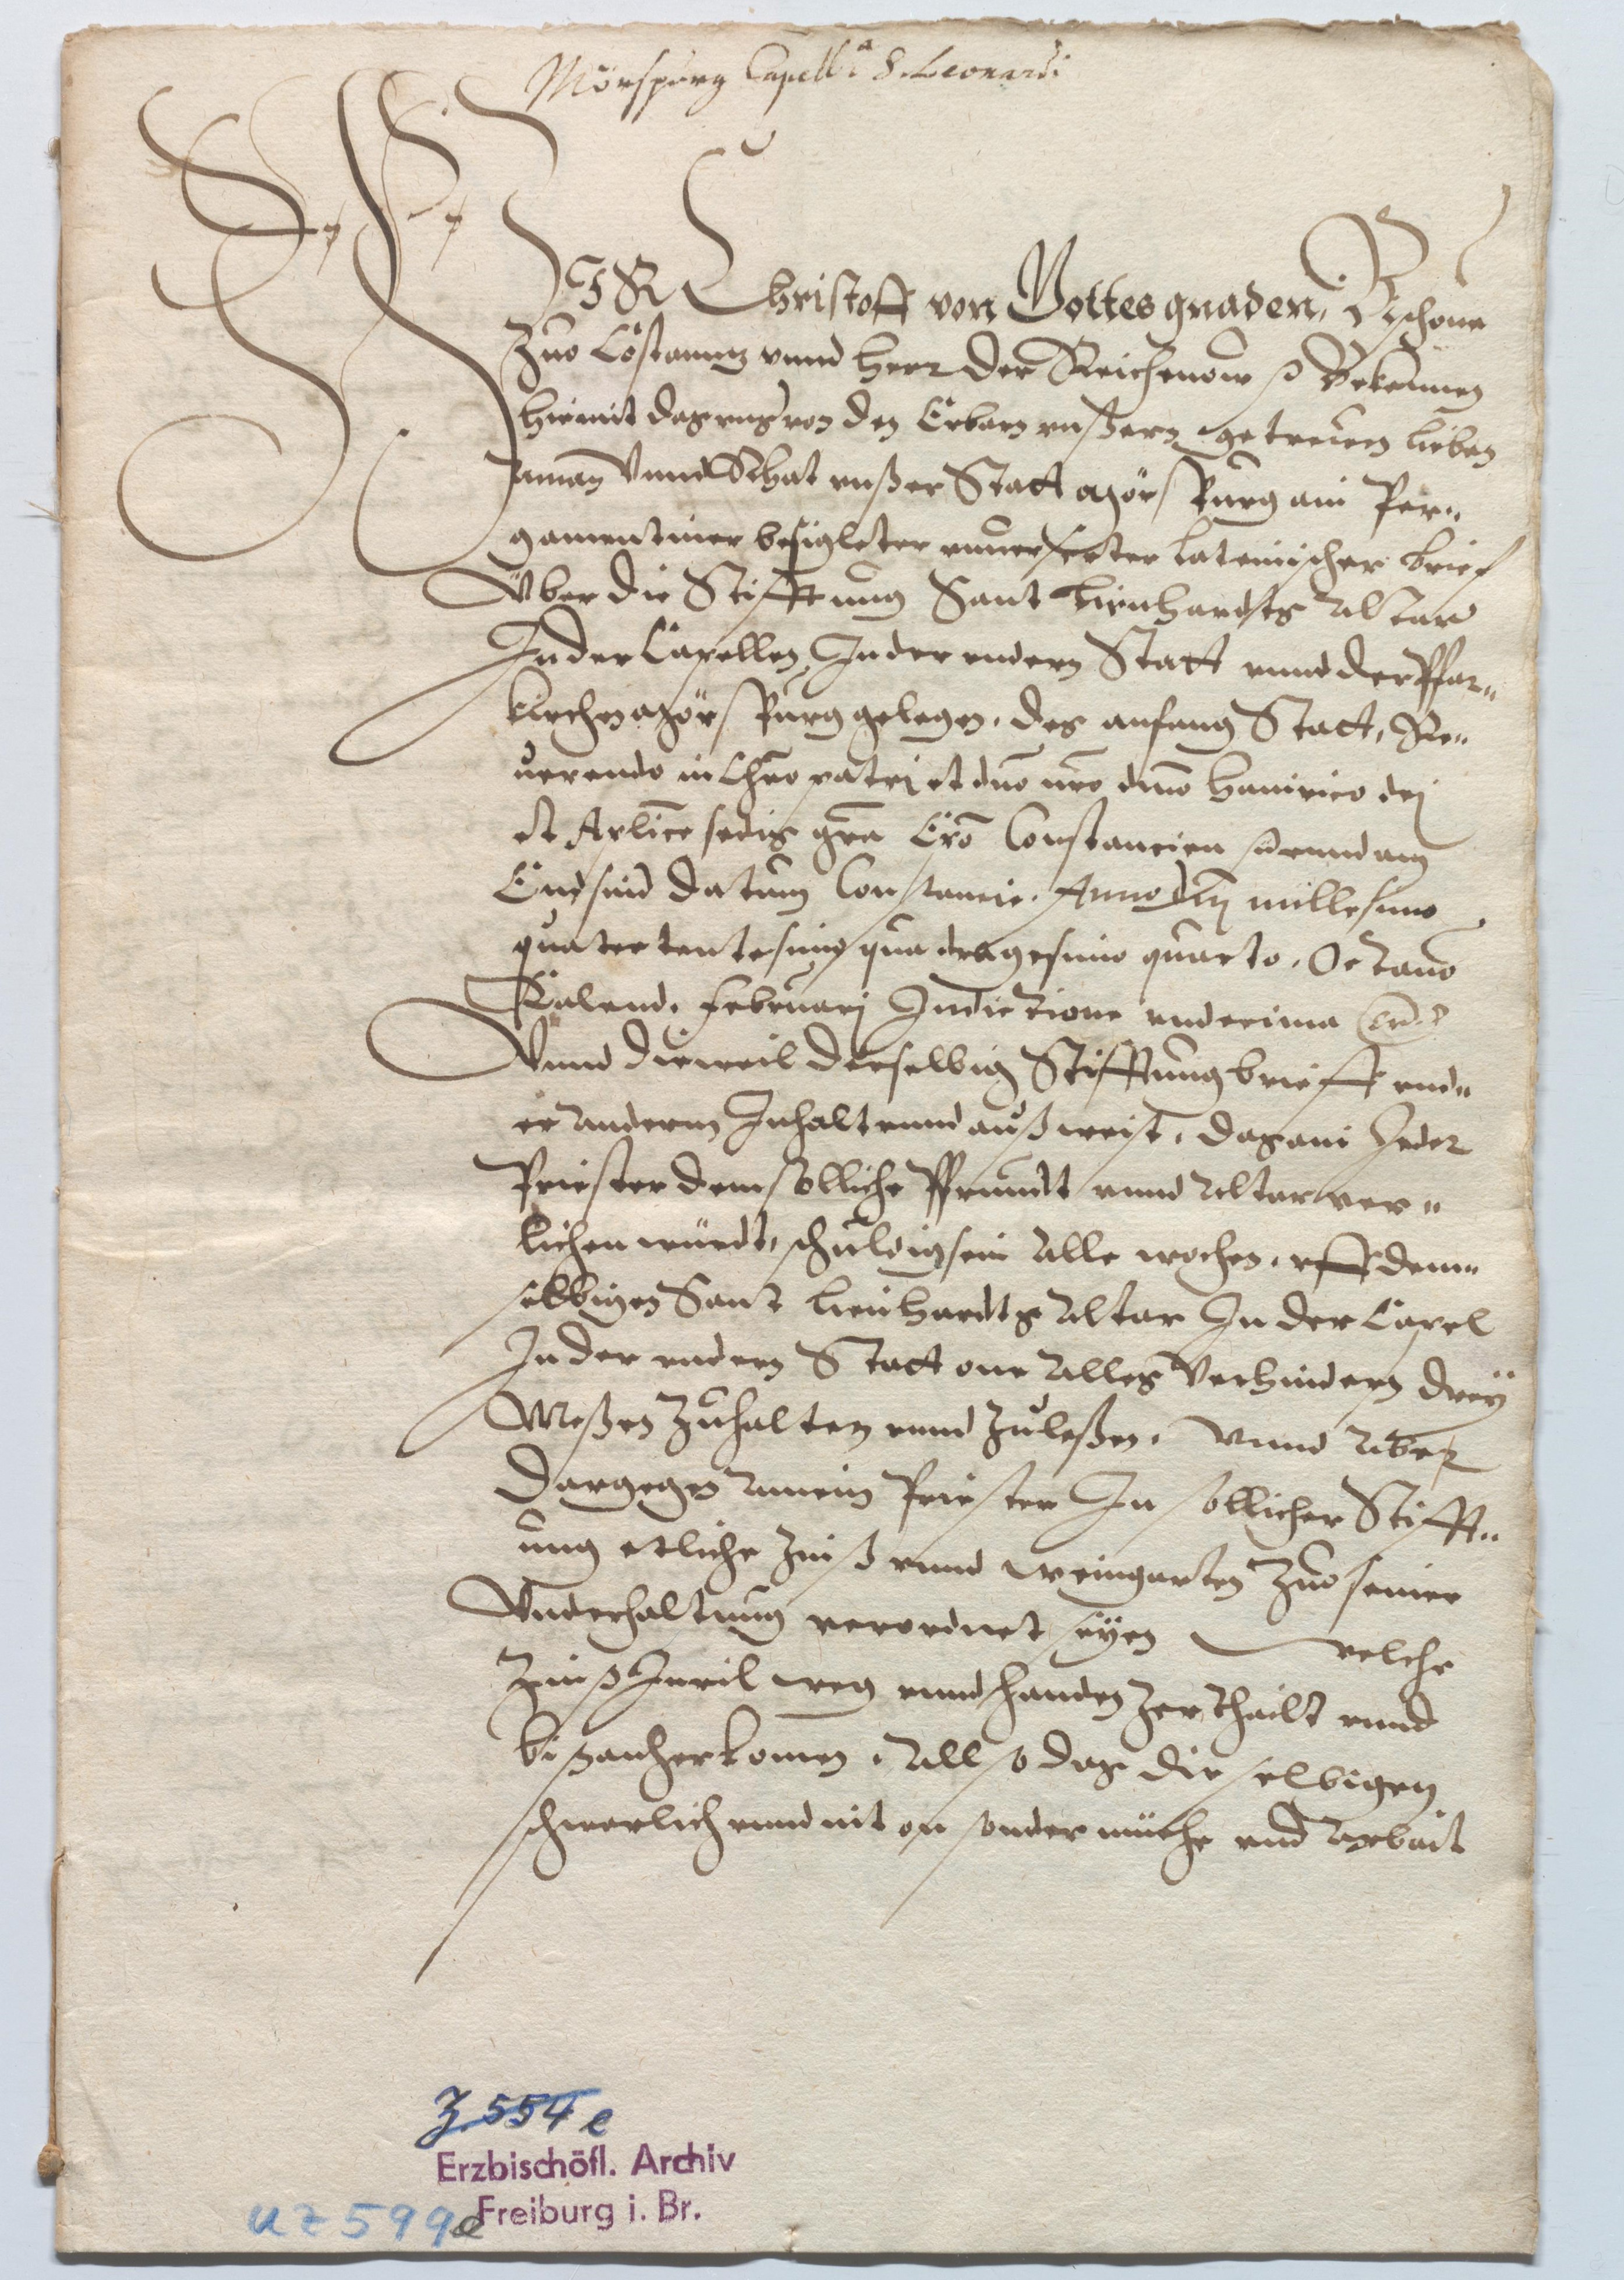 Mörspurg Capell. S. Leonardi
WIR Christoff von Gottes gnaden, Bischove
Zuo Costanntz vnnd Herr der Reichenow &c Bekennen
hiemit das vns von den Erbarn vnßern getreüen lieben
Aman Vnnd Rhat vnßer Statt Mörspurg ain Per„
gamentiner besigleter vnuerserter Lateinischer brief
Über die Stifftung Sant Lienhardts Altar
In der Capellen In der vndern Statt vnnd der Pfar„
kirchen Mörspurg gelegen, des anfang Statt, Re„
uerendo in Chro patri et dno nro dno Hainrico dei
et Aplice sedis gra Epo Constancien
End sind Datum Constancie. Anno dni millesimo
quatertentesimo quadragesimo quarto, Octauo
Kalend. Februarj Indictione vndecima
Vnnd dieweil derselbig Stifftung brieff vnd„
er anderm Inhalt vnnd außweist, das ain Jeder
Priester dem sölliche Pfrundt vnnd Altar ver„
lichen würdt, schuldig sein alle wochen, vff dem„
selbigen Sant Lienhardts Altar In der Capel
In der vndern Statt one alles Verhindern drey
Meßen Zuhalten vnnd Zuleßen, Vnnd aber
Dargegen ainem Priester In söllicher Stifft„
ung etliche Zinß vnnd weingarten Zuo seiner
Vnderhaltung verordnet seyen welche
Zinß In vil weg vnnd handen Zerthailt vnnd
bißanher komen, Allso das die selbigen
schwerlich vnnd nit on sonder müehe vnd Arbait
Z 554 e
Erzbischöfl. Archiv
Freiburg i. Br.
UZ 599e